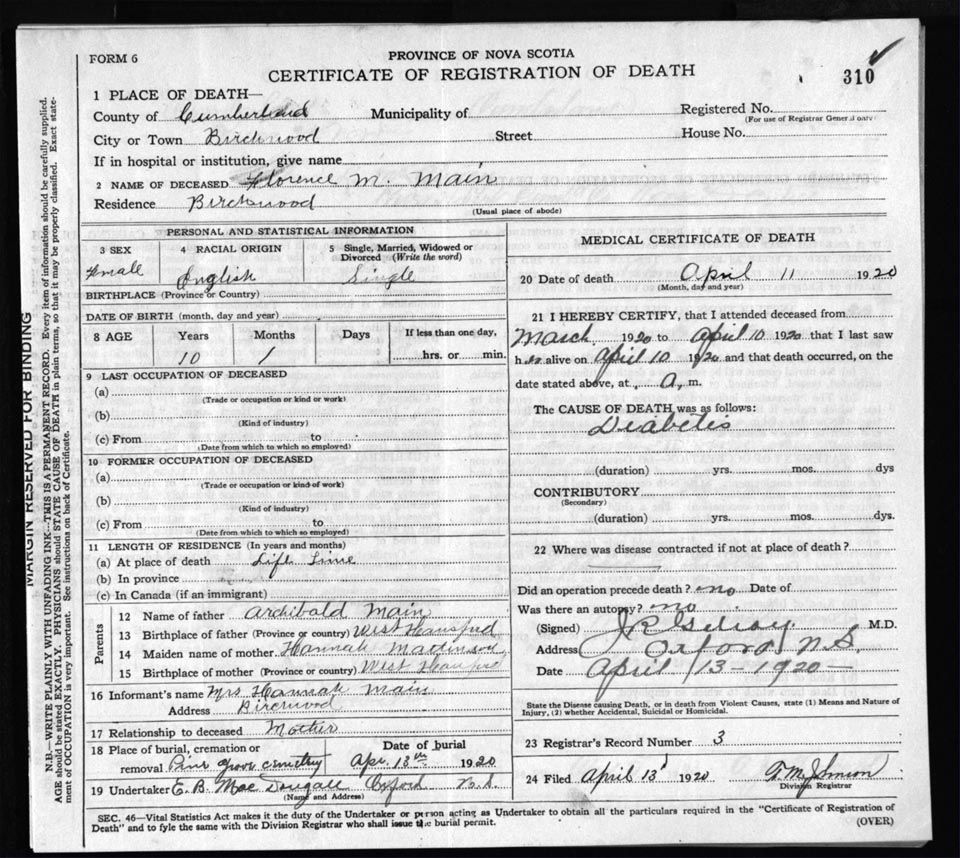 FORM 6
PROVINCE OF NOVA SCOTIA
CERTIFICATE OF REGISTRATION OF DEATH
310
1 PLACE OF DEATH—
County of Cumberland Municipality of Registered No.
(For use of Registrar General only)
City or Town Birchwood Street House No.
If in hospital or institution, give name
2 NAME OF DECEASED Florence M. Main
Residence Birchwood
(Usual place of abode)
PERSONAL AND STATISTICAL INFORMATION
3 SEX 4 RACIAL ORIGIN 5 Single, Married, Widowed or Divorced (Write the word)
Female English Single
BIRTHPLACE (Province or Country)
DATE OF BIRTH (month, day and year)
8 AGE Years Months Days If less than one day,
10 1 hrs. or min.
9 LAST OCCUPATION OF DECEASED
(a)
(Trade or occupation or kind or work)
(b)
(Kind of industry)
(c) From to
(Date from which to which so employed)
10 FORMER OCCUPATION OF DECEASED
(a)
(Trade or occupation or kind of work)
(b)
(Kind of industry)
(c) From to
(Date from which to which so employed)
11 LENGTH OF RESIDENCE (In years and months)
(a) At place of death Life Time
(b) In province
(c) In Canada (if an immigrant)
Parents
12 Name of father Archibald Main
13 Birthplace of father (Province or country) West Hansford
14 Maiden name of mother Hannah
15 Birthplace of mother (Province or country) West Hansford
16 Informant's name Mrs Hannah Main
Address Birchwood
17 Relationship to deceased Mother
18 Place of burial, cremation or Date of burial
removal Pine Grove Cemetery Apr. 13th 1920
19 Undertaker E. B. Mac Dougall Oxford N.S.
(Name and Address)
MEDICAL CERTIFICATE OF DEATH
20 Date of death April 11 1920
(Month, day and year)
21 I HEREBY CERTIFY, that I attended deceased from
March 1920 to April 10 1920 that I last saw
her alive on April 10 1920 and that death occurred, on the
date stated above, at A. m.
The CAUSE OF DEATH was as follows:
Diabetis
(duration) yrs. mos. dys
CONTRIBUTORY
(Secondary)
(duration) yrs. mos. dys.
22 Where was disease contracted if not at place of death?
Did an operation precede death? no Date of
Was there an autopsy? no
(Signed) M.D.
Address Oxford N.S.
Date April 13-1920-
State the Disease causing Death, or in death from Violent Causes, state (1) Means and Nature of
Injury, (2) whether Accidental, Suicidal or Homicidal.
23 Registrar's Record Number 3
24 Filed April 13 1920
Division Registrar
SEC. 46—Vital Statistics Act makes it the duty of the Undertaker or person acting as Undertaker to obtain all the particulars required in the "Certificate of Registration of
Death" and to fyle the same with the Division Registrar who shall issue the burial permit.
(OVER)
MARGIN RESERVED FOR BINDING
N.B.—WRITE PLAINLY WITH UNFADING INK—THIS IS A PERMANENT RECORD. Every item of information should be carefully supplied.
AGE should be stated EXACTLY. PHYSICIANS should STATE CAUSE OF DEATH in plain terms, so that it may be properly classified. Exact state-
ment of OCCUPATION is very important. See instructions on back of Certificate.